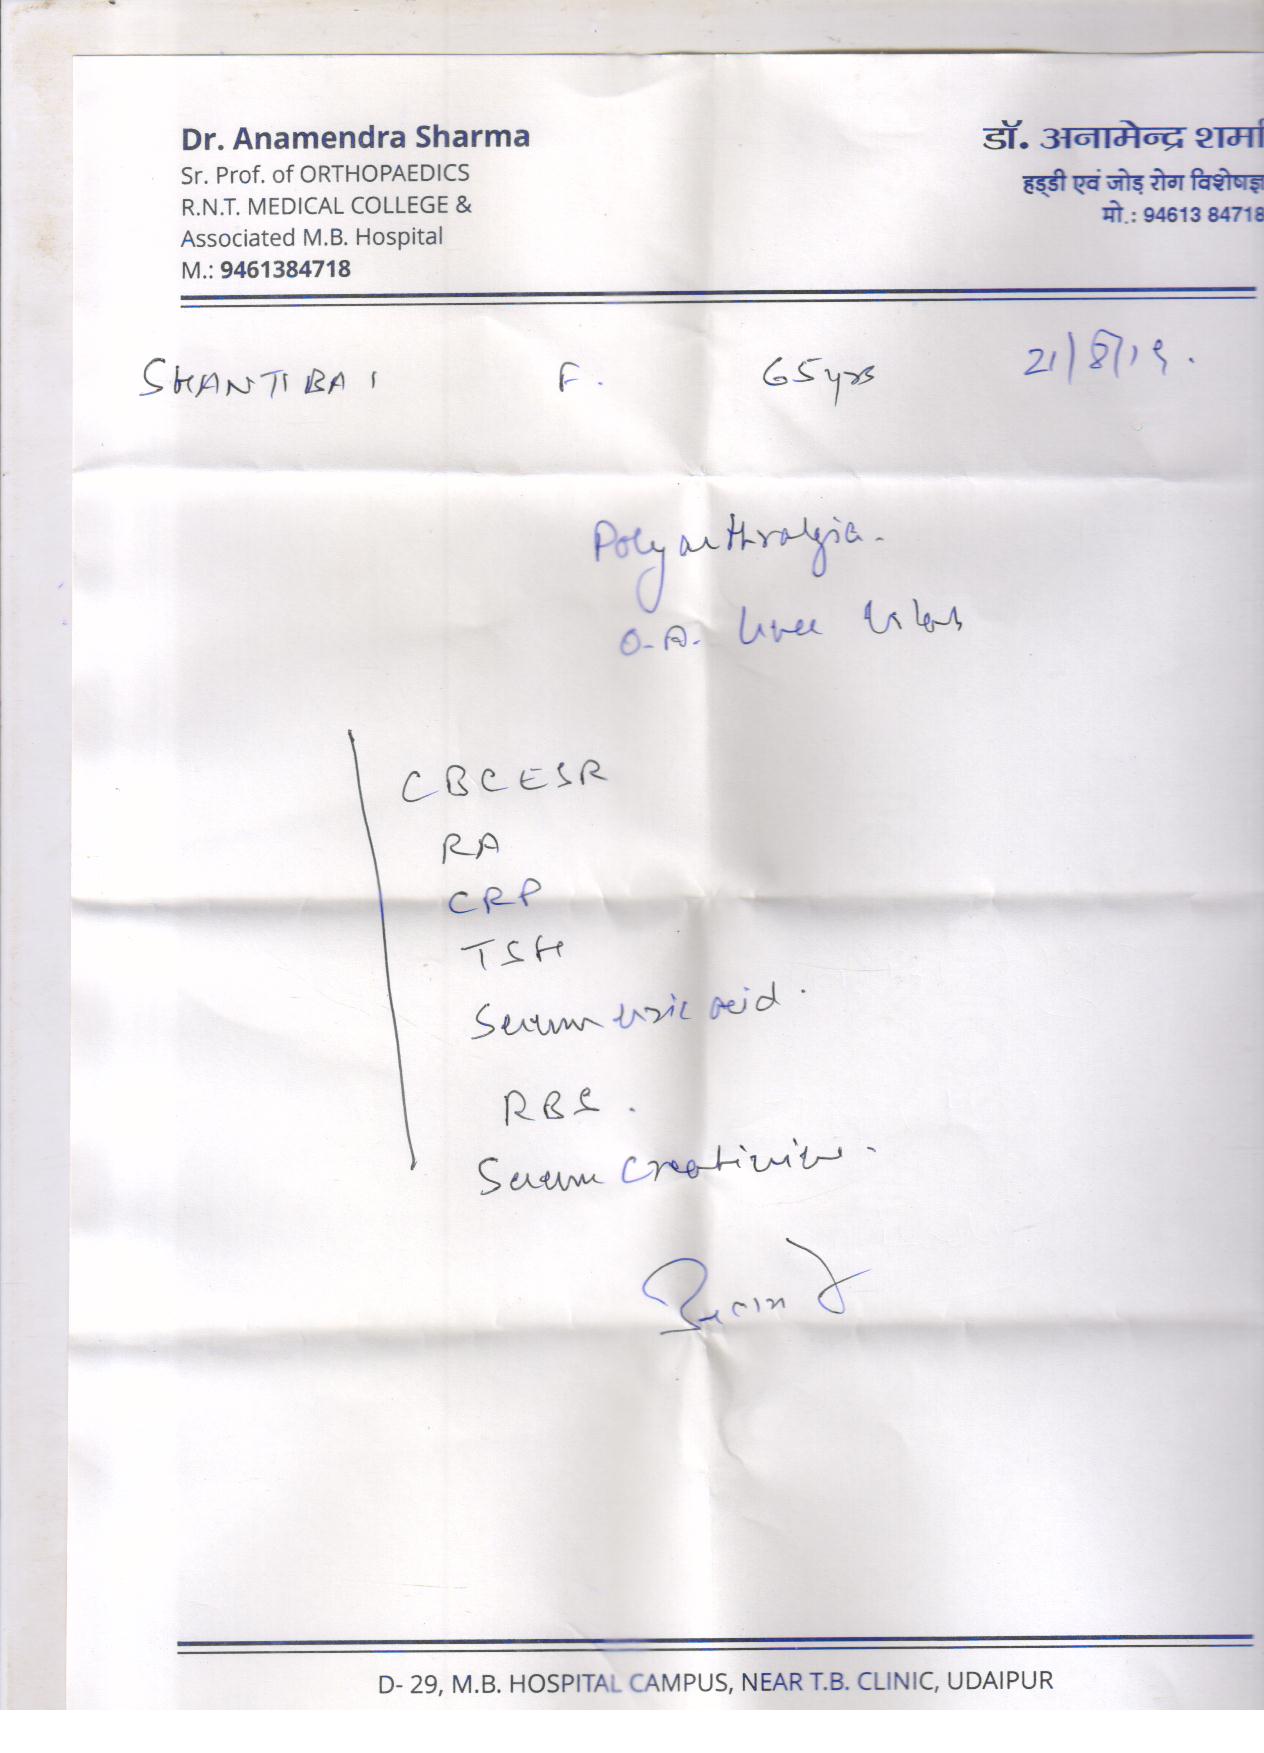 Dr. Anamendra Sharma
Sr. Prof. of ORTHOPAEDICS
R.N.T. MEDICAL COLLEGE &
Associated M.B. Hospital
M.: 9461384718
डॉ. अनामेन्द्र शर्मा
हड्डी एवं जोड़ रोग विशेषज्ञ
मो.: 94613 84718
SHANTI BAI F. 65yrs 21/8/19.
Polyarthralgia.
O.A. knee
CBC ESR
RA
CRP
TSH
Serum uric acid.
RBS.
Serum Creatinine.
D- 29, M.B. HOSPITAL CAMPUS, NEAR T.B. CLINIC, UDAIPUR